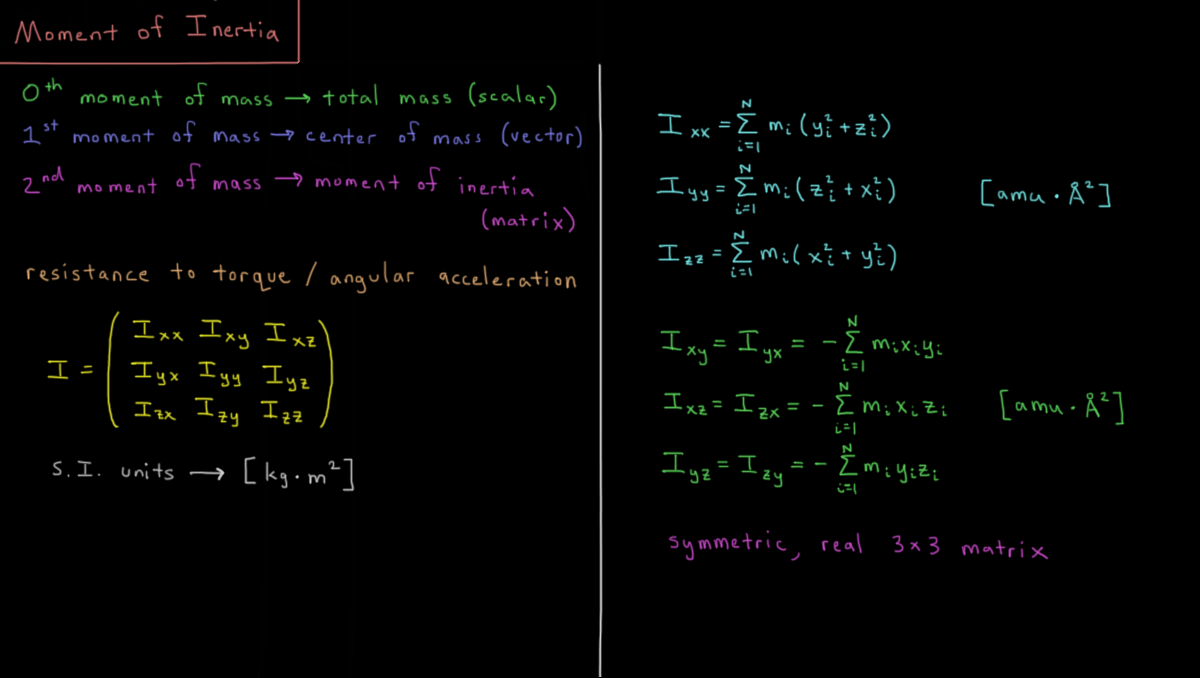 Moment of Inertia
0th moment of mass → total mass (scalar)
1st moment of mass → center of mass (vector)
2nd moment of mass → moment of inertia
(matrix)
resistance to torque / angular acceleration
I = ( Ixx Ixy Ixz
Iyx Iyy Iyz
Izx Izy Izz )
S.I. units → [kg·m²]
Ixx = Σ_{i=1}^{N} mᵢ (yᵢ² + zᵢ²)
Iyy = Σ_{i=1}^{N} mᵢ (zᵢ² + xᵢ²) [amu · Å²]
Izz = Σ_{i=1}^{N} mᵢ ( xᵢ² + yᵢ²)
Ixy = Iyx = - Σ_{i=1}^{N} mᵢxᵢyᵢ
Ixz = Izx = - Σ_{i=1}^{N} mᵢxᵢzᵢ [amu · Å²]
Iyz = Izy = - Σ_{i=1}^{N} mᵢyᵢzᵢ
symmetric, real 3×3 matrix